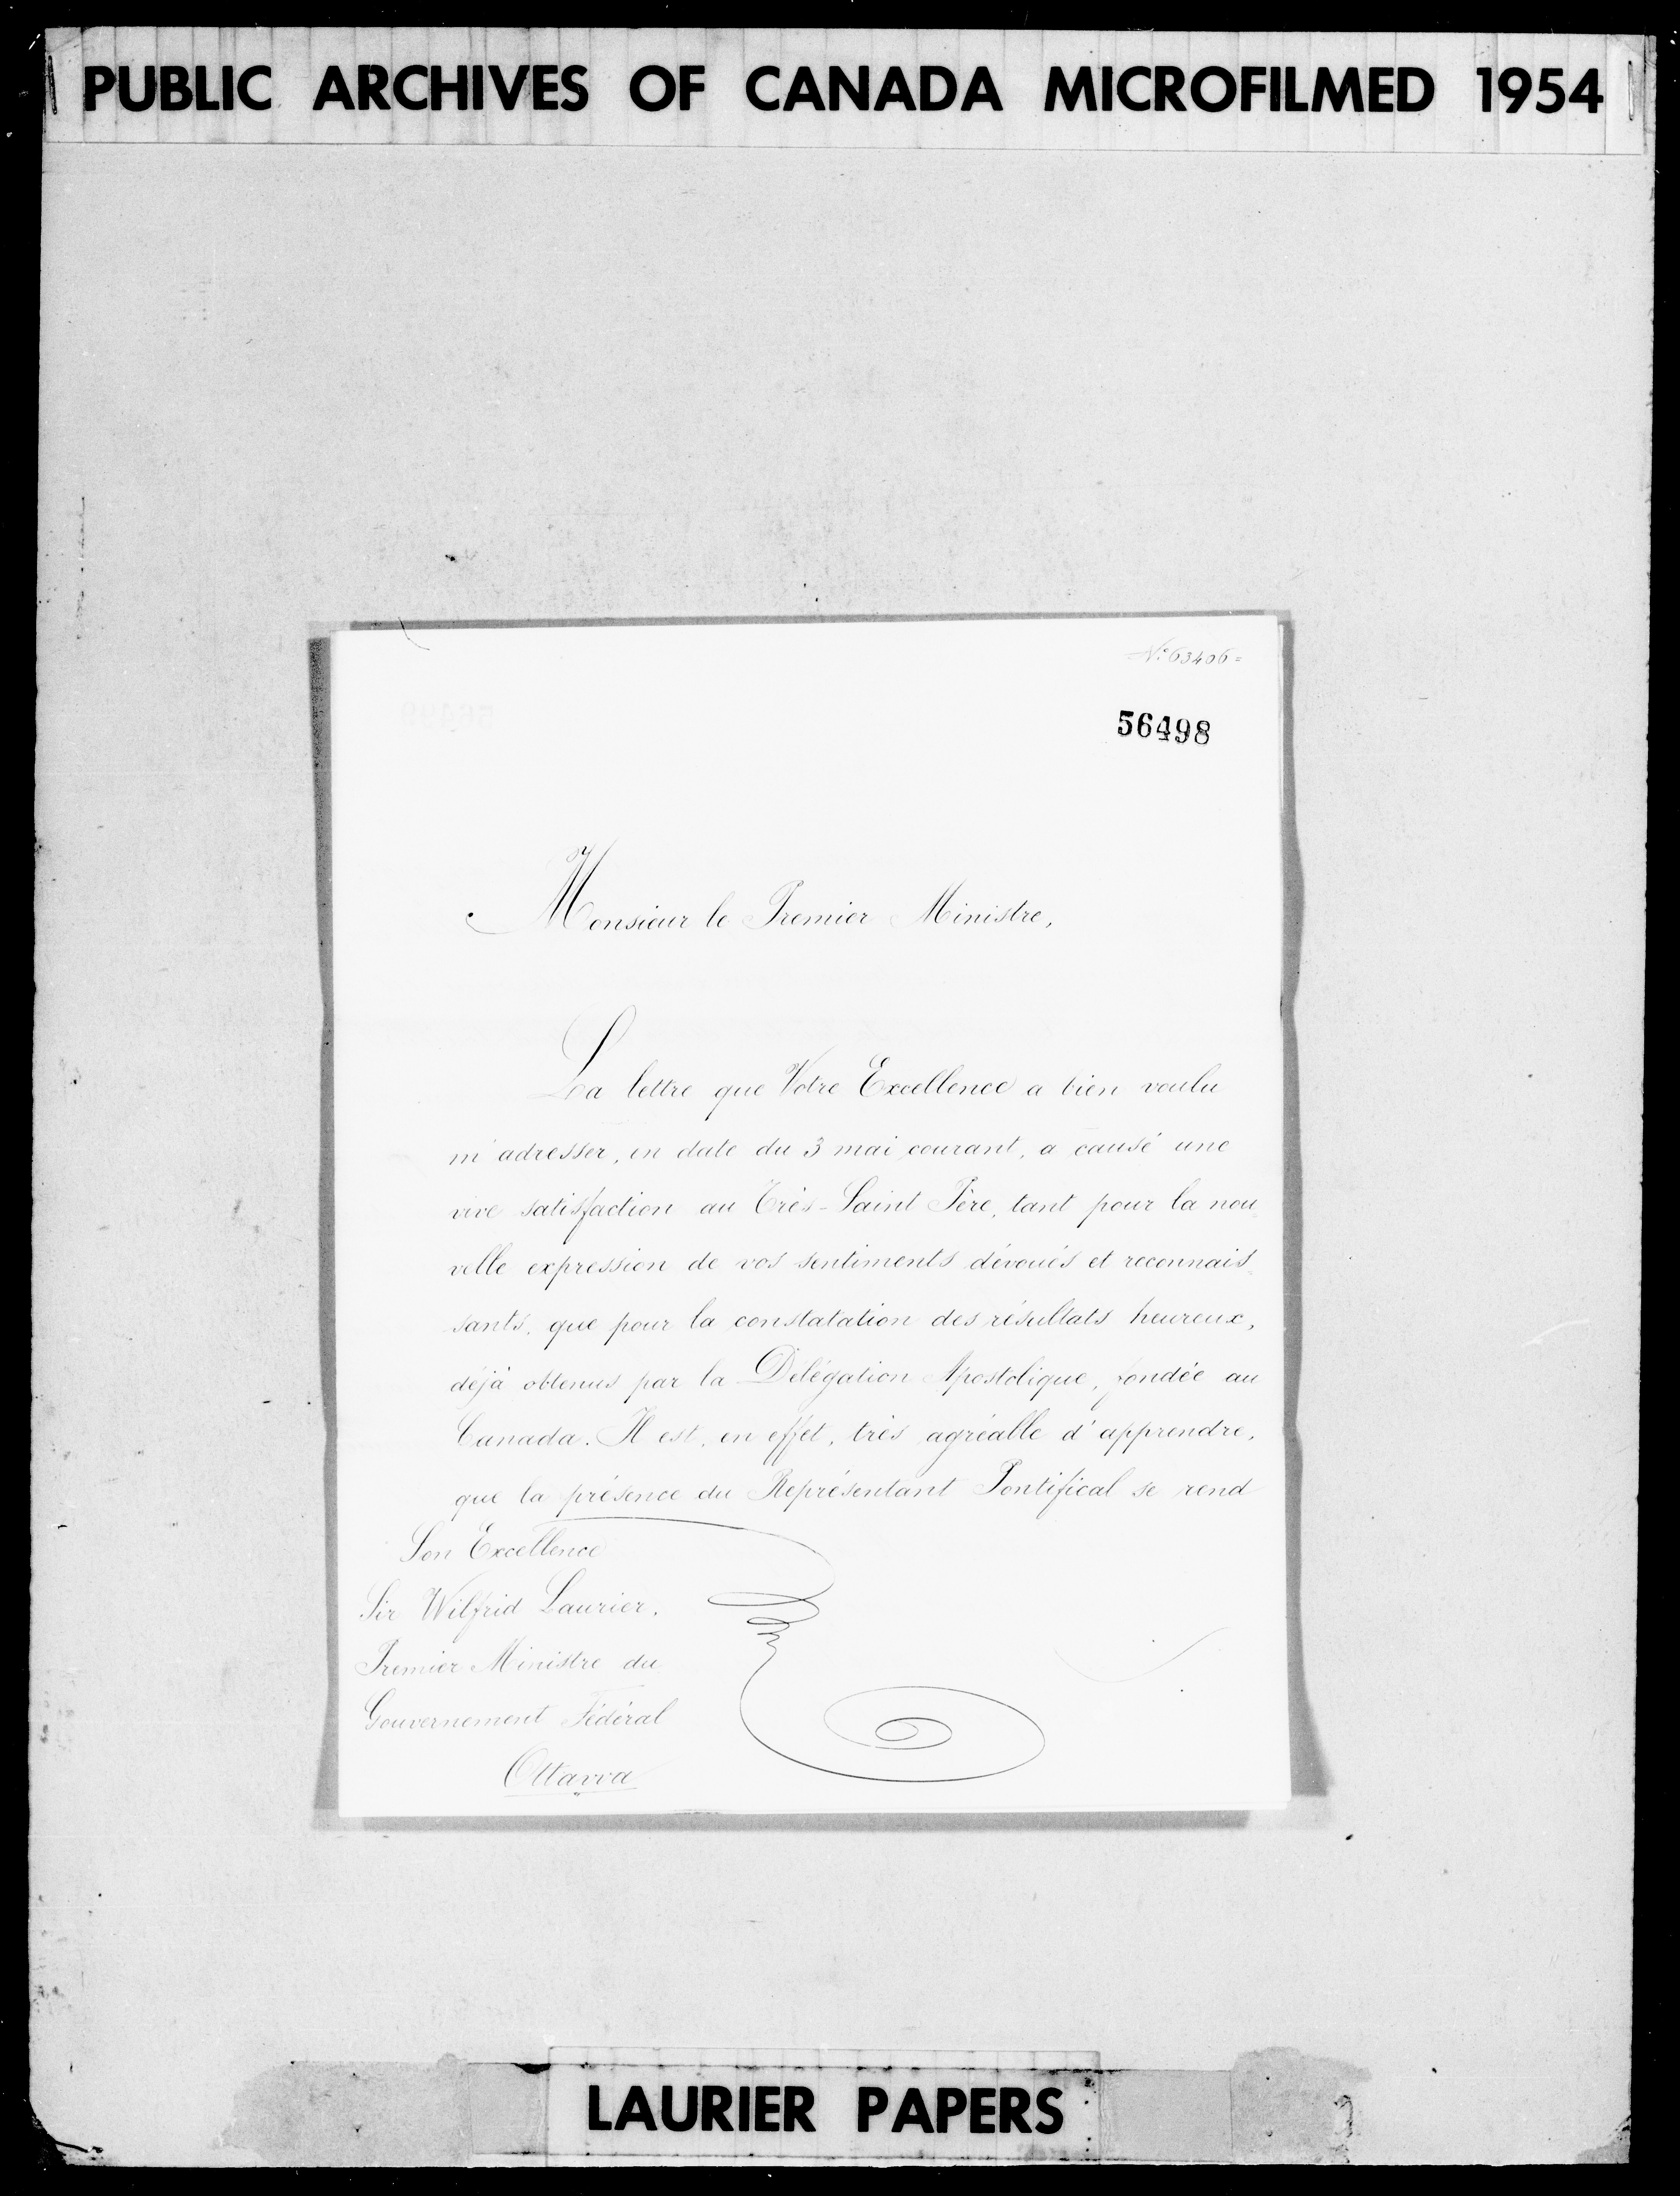 PUBLIC ARCHIVES OF CANADA MICROFILMED 1954
N.o 63406=
56498
Monsieur le Premier Ministre,
La lettre que Votre Excellence a bien voulu
m'adresser, en date du 3 mai courant, a causé une
vive satisfaction au Très-Saint Père, tant pour la nou-
velle expression de vos sentiments dévoués et reconnais-
sants, que pour la constatation des résultats heureux,
déjà obtenus par la Délégation Apostolique, fondée au
Canada. Il est, en effet, très agréable d'apprendre,
que la présence du Représentant Pontifical se rend
Son Excellence
Sir Wilfrid Laurier,
Premier Ministre du
Gouvernement Fédéral
Ottawa
LAURIER PAPERS